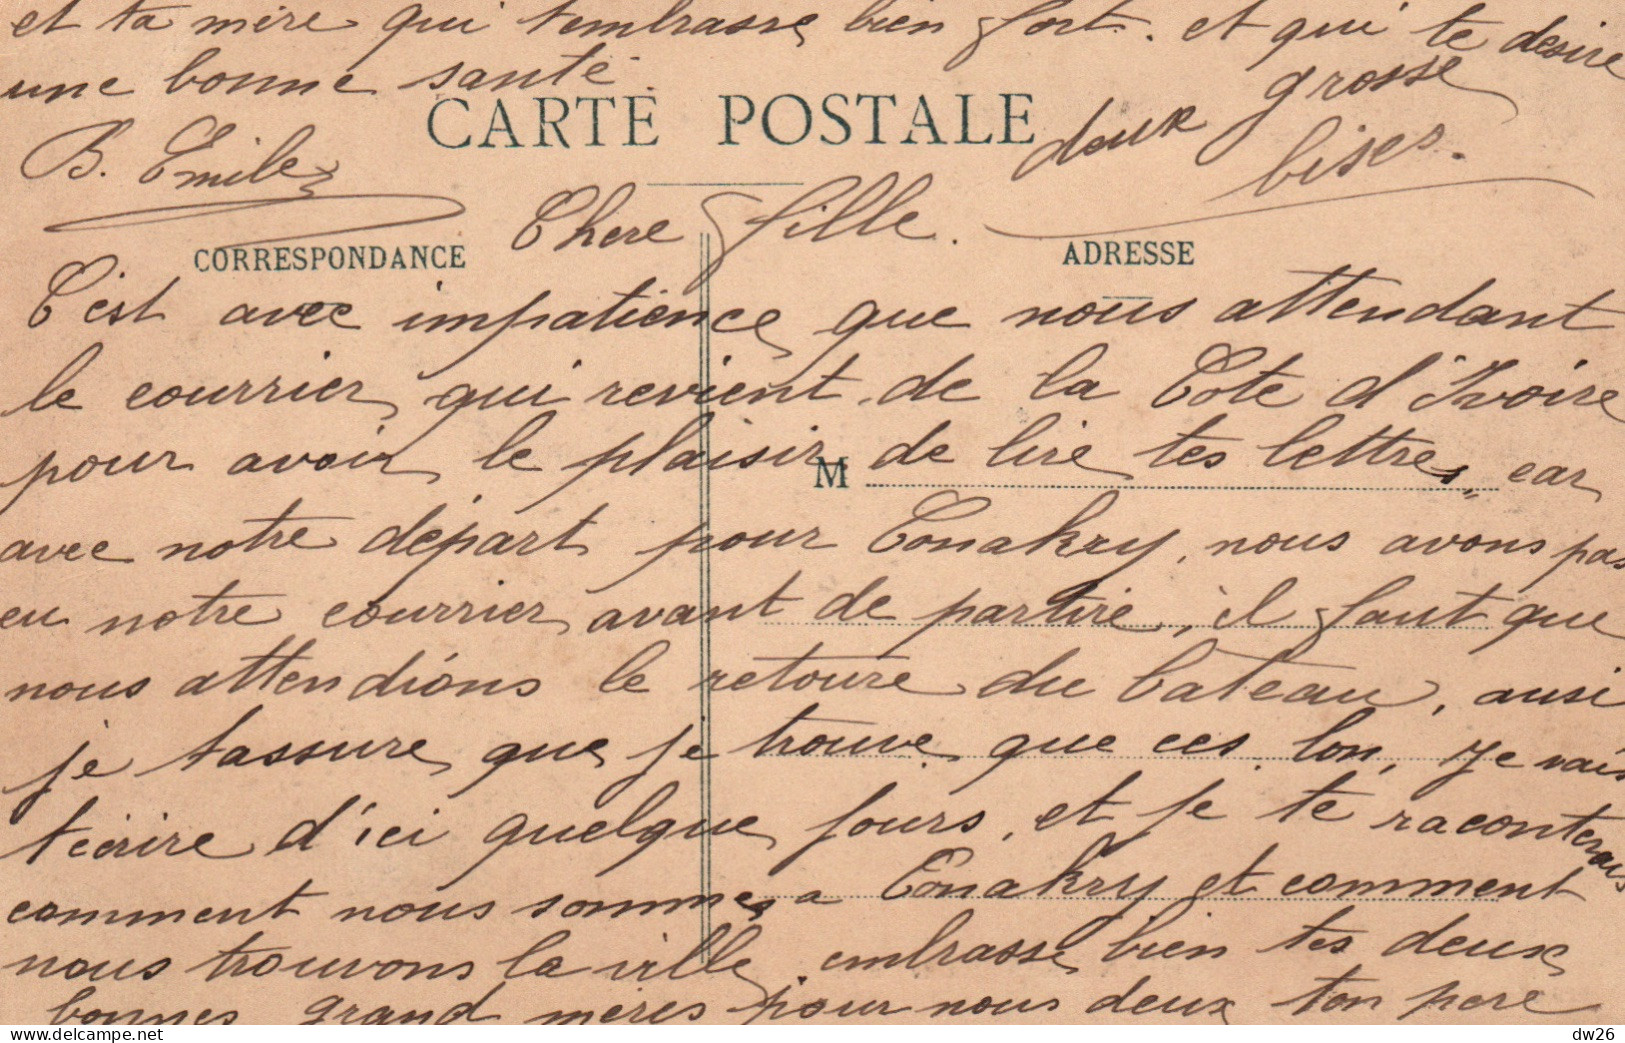 et ta mère qui t'embrasse bien fort. et qui te desire
une bonne santé.
deux grosse
bises.
B. Emile
CARTE POSTALE
Chere fille.
CORRESPONDANCE
ADRESSE
C'est avec impatience que nous attendant
le courrier qui revient de la Cote d'Ivoire
pour avoir le plaisir de lire tes lettres, car
M
avec notre départ pour Conakry, nous avons pas
eu notre courrier avant de partire, il faut que
nous attendions le retoure du bateau, ausi
je tassure que je trouve que ces lon, Je vais
t'ecrire d'ici quelque jours, et je te raconterais
comment nous sommes a Conakry et comment
nous trouvons la ville, embrasse bien tes deux
bonnes grand mères pour nous deux ton pere
dw26